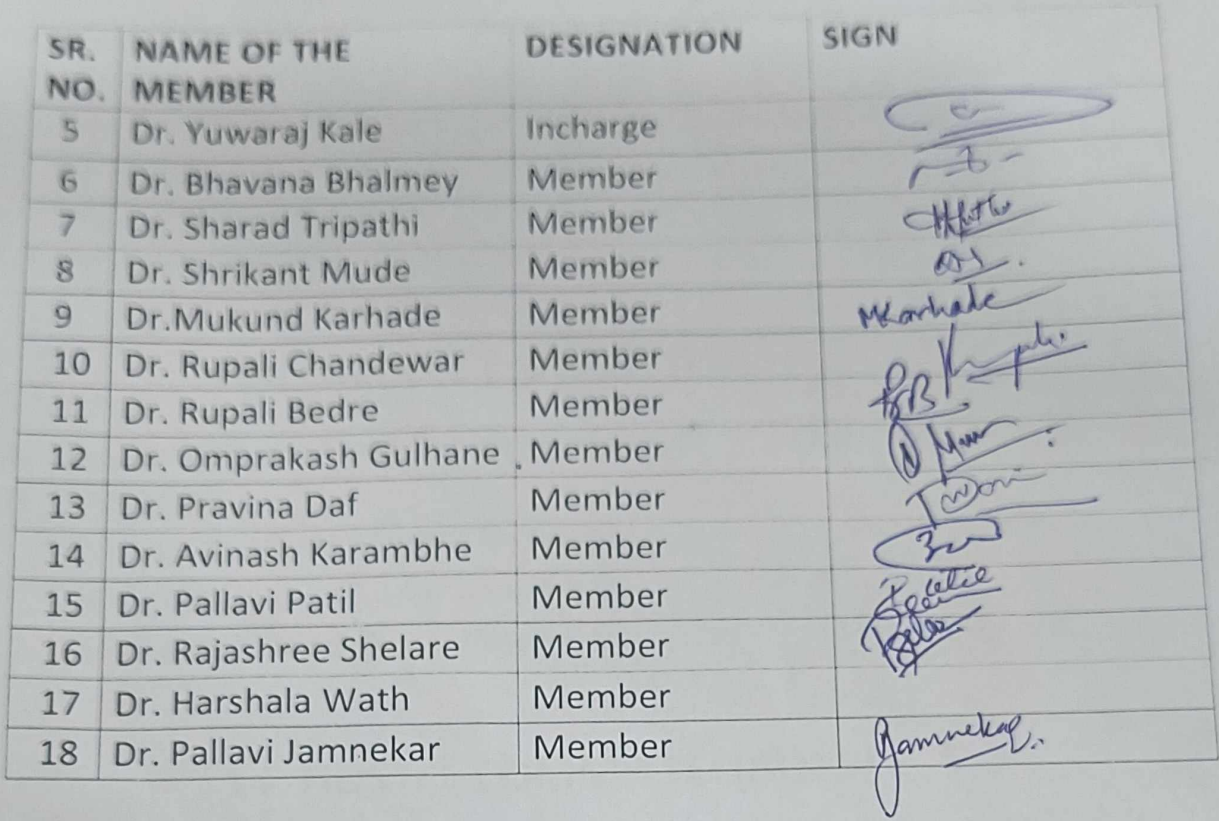 SR. NO. NAME OF THE MEMBER DESIGNATION SIGN
5 Dr. Yuwaraj Kale Incharge
6 Dr. Bhavana Bhalmey Member
7 Dr. Sharad Tripathi Member
8 Dr. Shrikant Mude Member
9 Dr.Mukund Karhade Member MKarhade
10 Dr. Rupali Chandewar Member
11 Dr. Rupali Bedre Member
12 Dr. Omprakash Gulhane Member
13 Dr. Pravina Daf Member
14 Dr. Avinash Karambhe Member
15 Dr. Pallavi Patil Member
16 Dr. Rajashree Shelare Member
17 Dr. Harshala Wath Member
18 Dr. Pallavi Jamnekar Member Jamnekar